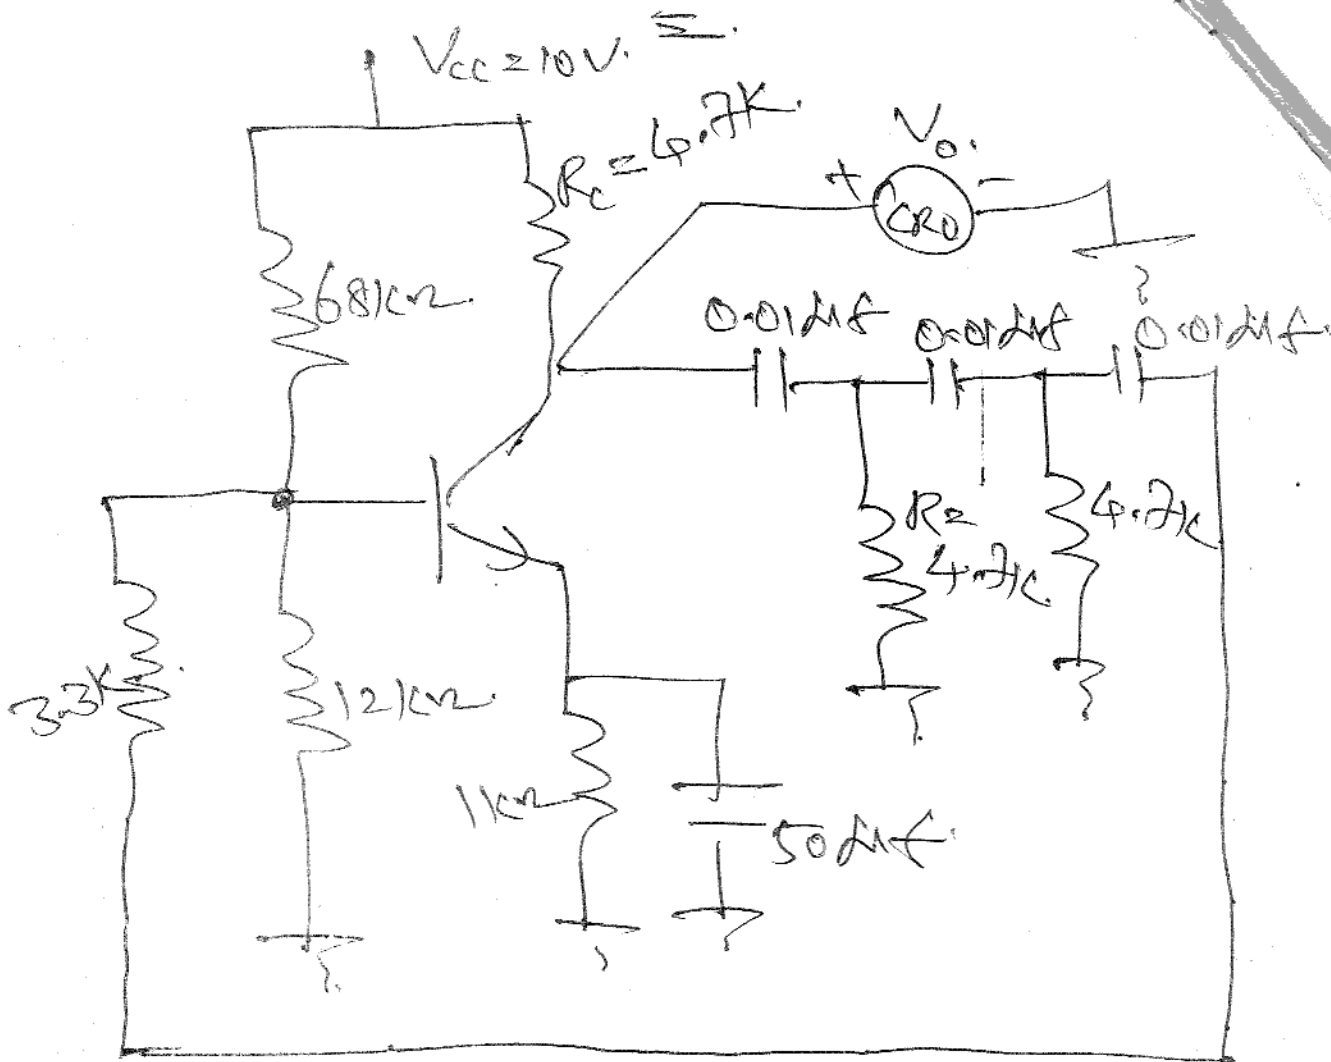 Vcc = 10V.
Rc = 4.7K.
Vo.
+
-
CRO
68kΩ.
0.01μf
0.01μf
0.01μf.
R =
4.7k.
4.7k
3.3K.
12kΩ.
1kΩ
50μf.